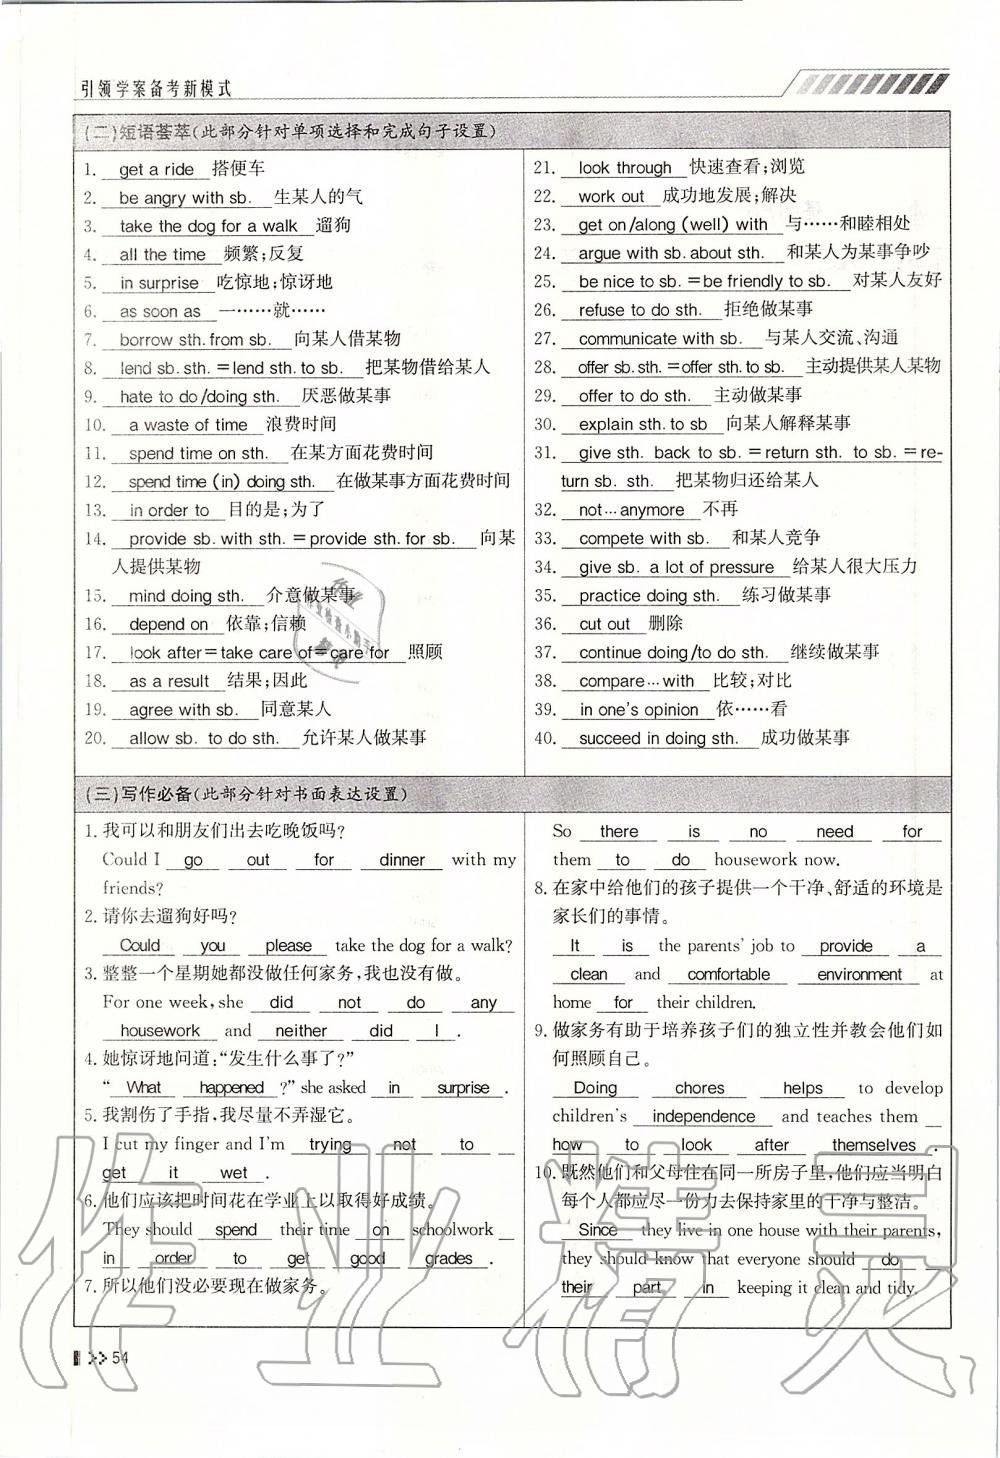 引领学案备考新模式
(二)短语荟萃(此部分针对单项选择和完成句子设置)
1. get a ride 搭便车
2. be angry with sb. 生某人的气
3. take the dog for a walk 遛狗
4. all the time 频繁;反复
5. in surprise 吃惊地;惊讶地
6. as soon as 一……就……
7. borrow sth. from sb. 向某人借某物
8. lend sb. sth. =lend sth. to sb. 把某物借给某人
9. hate to do/doing sth. 厌恶做某事
10. a waste of time 浪费时间
11. spend time on sth. 在某方面花费时间
12. spend time (in) doing sth. 在做某事方面花费时间
13. in order to 目的是;为了
14. provide sb. with sth. =provide sth. for sb. 向某
人提供某物
15. mind doing sth. 介意做某事
16. depend on 依靠;信赖
17. look after=take care of=care for 照顾
18. as a result 结果;因此
19. agree with sb. 同意某人
20. allow sb. to do sth. 允许某人做某事
21. look through 快速查看;浏览
22. work out 成功地发展;解决
23. get on/along (well) with 与……和睦相处
24. argue with sb. about sth. 和某人为某事争吵
25. be nice to sb. =be friendly to sb. 对某人友好
26. refuse to do sth. 拒绝做某事
27. communicate with sb. 与某人交流、沟通
28. offer sb. sth. =offer sth. to sb. 主动提供某人某物
29. offer to do sth. 主动做某事
30. explain sth. to sb 向某人解释某事
31. give sth. back to sb. =return sth. to sb. =re-
turn sb. sth. 把某物归还给某人
32. not…anymore 不再
33. compete with sb. 和某人竞争
34. give sb. a lot of pressure 给某人很大压力
35. practice doing sth. 练习做某事
36. cut out 删除
37. continue doing/to do sth. 继续做某事
38. compare…with 比较;对比
39. in one's opinion 依……看
40. succeed in doing sth. 成功做某事
(三)写作必备(此部分针对书面表达设置)
1. 我可以和朋友们出去吃晚饭吗?
Could I go out for dinner with my
friends?
2. 请你去遛狗好吗?
Could you please take the dog for a walk?
3. 整整一个星期她都没做任何家务,我也没有做。
For one week, she did not do any
housework and neither did I .
4. 她惊讶地问道:“发生什么事了?”
“ What happened ?” she asked in surprise .
5. 我割伤了手指,我尽量不弄湿它。
I cut my finger and I'm trying not to
get it wet .
6. 他们应该把时间花在学业上以取得好成绩。
They should spend their time on schoolwork
in order to get good grades .
7. 所以他们没必要现在做家务。
So there is no need for
them to do housework now.
8. 在家中给他们的孩子提供一个干净、舒适的环境是
家长们的事情。
It is the parents' job to provide a
clean and comfortable environment at
home for their children.
9. 做家务有助于培养孩子们的独立性并教会他们如
何照顾自己。
Doing chores helps to develop
children's independence and teaches them
how to look after themselves .
10. 既然他们和父母住在同一所房子里,他们应当明白
每个人都应尽一份力去保持家里的干净与整洁。
Since they live in one house with their parents,
they should know that everyone should do
their part in keeping it clean and tidy.
54
作业精灵